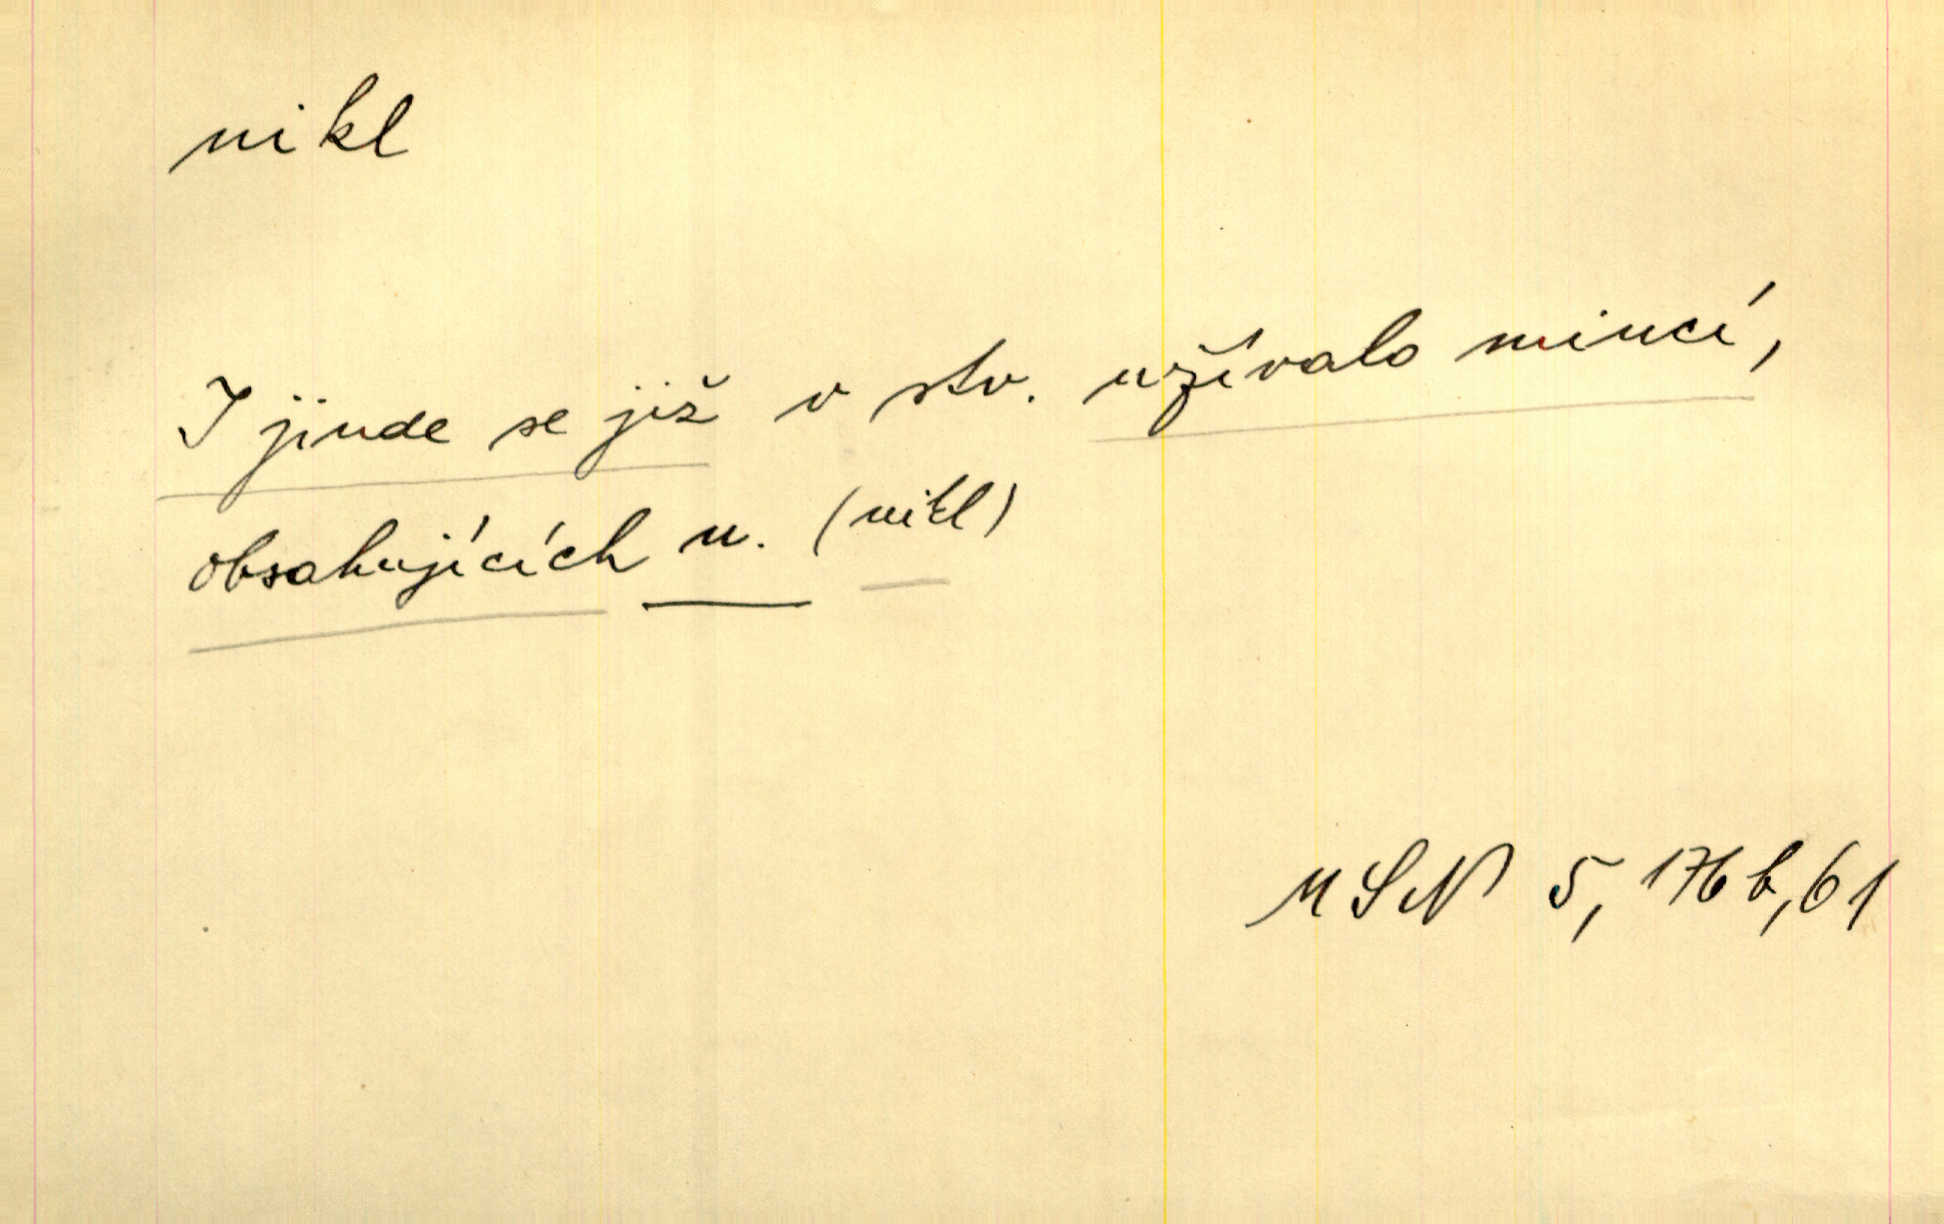 nikl
I jinde se již v stv. užívalo mincí,
obsahujících n. (nikl)
MSN 5, 176 b, 61